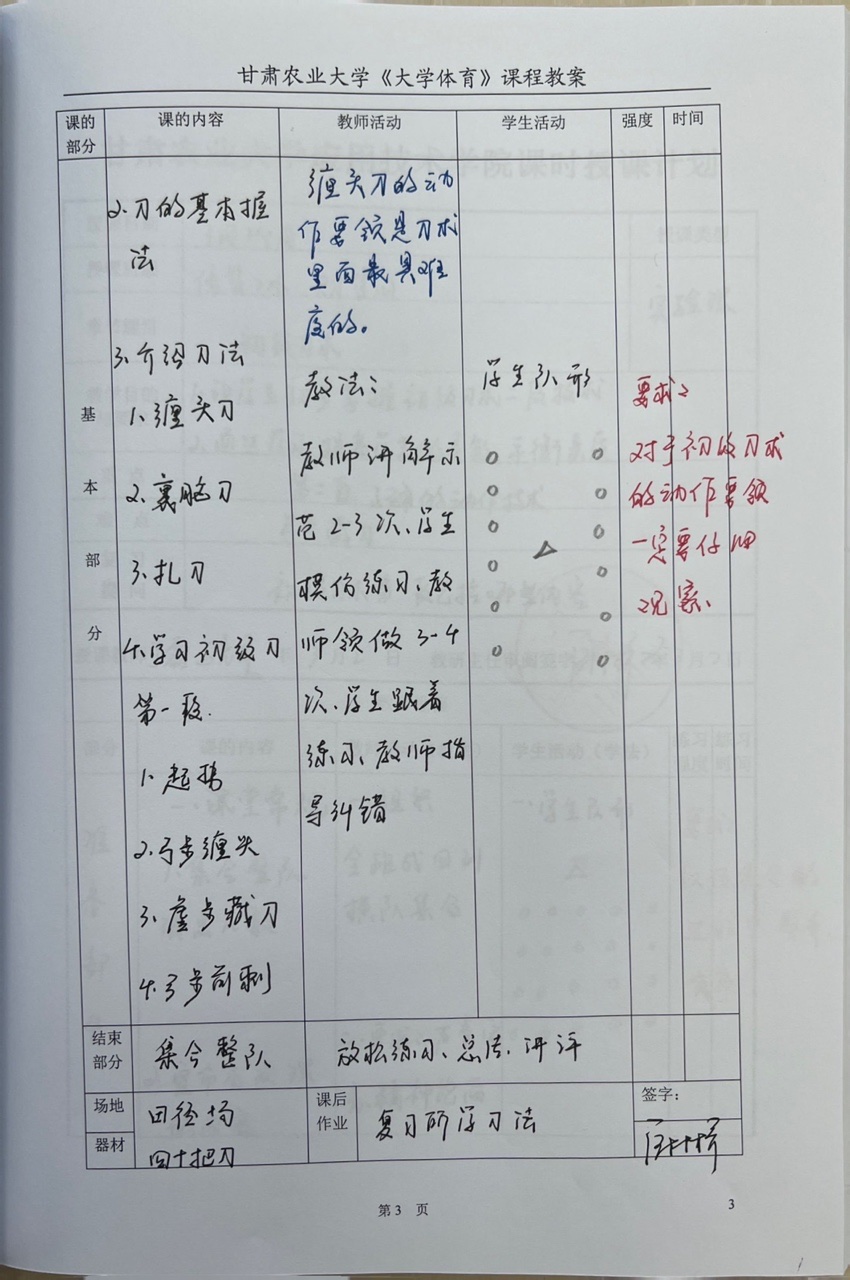 甘肃农业大学《大学体育》课程教案
课的部分 课的内容 教师活动 学生活动 强度 时间
基本部分
2.刀的基本握
法
3.介绍刀法
1.缠头刀
2.裹脑刀
3.扎刀
4.学习初级刀
第一段.
1.起势
2.弓步缠头
3.虚步藏刀
4.弓步前刺
缠头刀的动
作要领是刀术
里面最具难
度的。
教法：
教师讲解示
范2-3次、学生
模仿练习、教
师领做3-4
次、学生跟着
练习、教师指
导纠错
学生队形
要求：
对于初级刀术
的动作要领
一定要仔细
观察、
结束部分 集合整队 放松练习、总结、讲评
场地 田径场
器材 四十把刀
课后作业 复习所学刀法
签字：
第 3 页
3